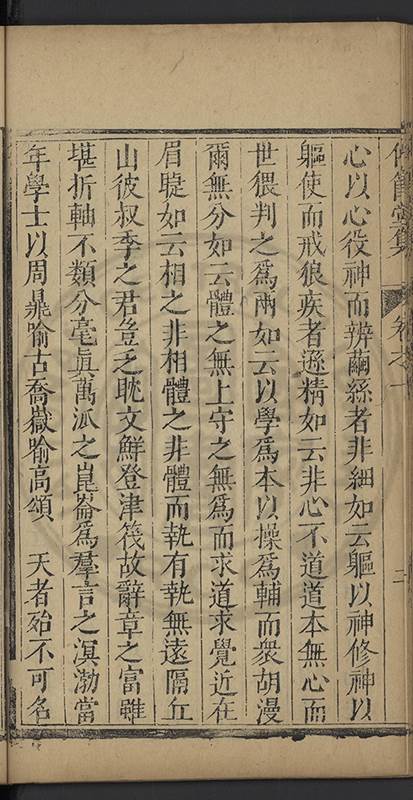 集 卷之一 二
心以心役神而辨繭絲者非細如云軀以神修神以
軀使而戒狼疾者遜精如云非心不道道本無心而
世猥判之爲兩如云以學爲本以操爲輔而衆胡漫
爾無分如云體之無上守之無爲而求道求覺近在
眉睫如云相之非相體之非體而執有執無遠隔丘
山彼叔季之君豈乏耽文鮮登津筏故辭章之富雖
堪折軸不類分毫眞萬派之崑崙爲羣言之溟渤當
年學士以周鼎喻古喬嶽喻高頌　天者殆不可名